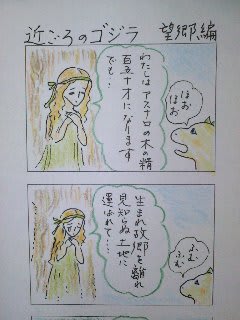 近ごろのゴジラ 望郷編
ほお
ほお
わたしは
アスナロの木の精
百五十才になります
でも…
ふむ
ふむ
生まれ故郷を離れ
見知らぬ土地に
運ばれて…